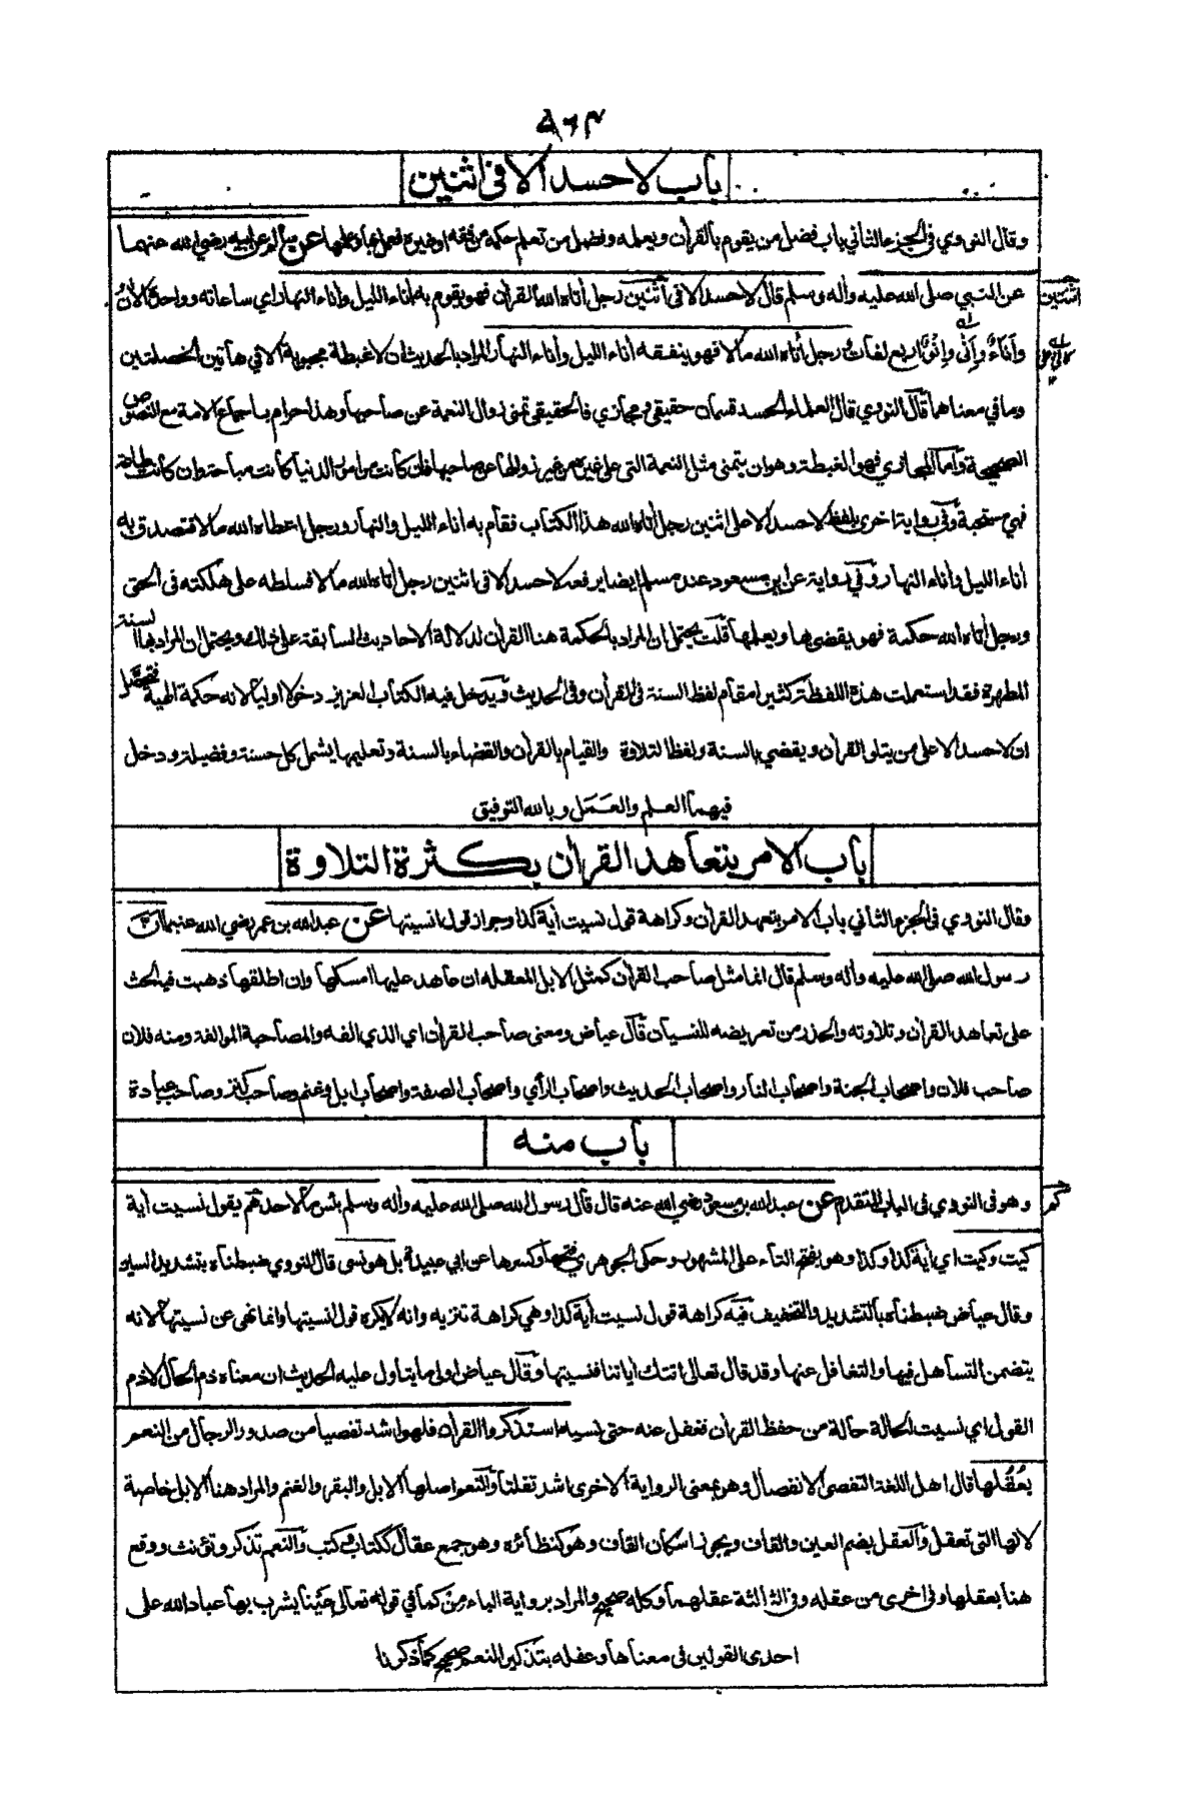 ٥٦٣
باب لا حسد الا في اثنين
وقال النووي في الجزء الثاني باب فضل من يقوم بالقرأن ويعلمه وفضل من تعلم حكمة من فقه او غيره فعمل بها وعلمها عن سالم عن ابيه رضي الله عنهما
عن النبي صلى الله عليه وأله وسلم قال لا حسد الا في اثنتين رجل أتاه الله القرأن فهو يقوم به أناء الليل وأناء النهار اي ساعاته وواحدة الأن
وأناء وإنى وإنو اربع لغات ورجل أتاه الله مالا فهو ينفقه أناء الليل وأناء النهار المراد بالحديث ان لا غبطة محبوبة الا في هاتين الخصلتين
وما في معناها قال النووي قال العلماء الحسد قسمان حقيقي ومجازي فالحقيقي تمني زوال النعمة عن صاحبها وهذا حرام باجماع الامة مع النصوص
الصحيحة وأما المجازي فهو الغبطة وهو ان يتمنى مثل النعمة التي على غيره من غير زوالها عن صاحبها فان كانت من امور الدنيا كانت مباحة وان كانت طاعة
فهي مستحبة وفي رواية اخرى بلفظ لا حسد الا على اثنين رجل أتاه الله هذا الكتاب فقام به أناء الليل والنهار ورجل اعطاه الله مالا فتصدق به
أناء الليل وأناء النهار وفي رواية عن ابن مسعود عند مسلم ايضا يرفعه لا حسد الا في اثنتين رجل أتاه الله مالا فسلطه على هلكته في الحق
ورجل أتاه الله حكمة فهو يقضي بها ويعلمها قلت يحتمل ان المراد بالحكمة هنا القرأن لدلالة الاحاديث السابقة على ذلك ويحتمل ان المراد بها السنة
المطهرة فقد استعملت هذه اللفظة كثيرا مقام لفظ السنة في القرأن وفي الحديث ويدخل فيه الكتاب العزيز دخولا اوليا لانه حكمة الهية فتحصل
ان لا حسد الا على من يتلو القرأن ويقضي بالسنة ولفظ التلاوة والقيام بالقرأن والقضاء بالسنة وتعليمها يشمل كل حسنة وفضيلة ودخل
فيهما العلم والعمل وبالله التوفيق
باب الامر بتعاهد القرأن بكثرة التلاوة
وقال النووي في الجزء الثاني باب الامر بتعهد القرأن وكراهة قول نسيت أية كذا وجواز قول انسيتها عن عبدالله بن عمر رضي الله عنهما ان
رسول الله صلى الله عليه وأله وسلم قال انما مثل صاحب القرأن كمثل الابل المعقلة ان عاهد عليها امسكها وان اطلقها ذهبت فيه الحث
على تعاهد القرأن وتلاوته والحذر من تعريضه للنسيان قال عياض ومعنى صاحب القرأن اي الذي الفه والمصاحبة الموالفة ومنه فلان
صاحب فلان واصحاب الجنة واصحاب النار واصحاب الحديث واصحاب الرأي واصحاب الصفة واصحاب ابل وغنم وصاحب كنز وصاحب عبادة
باب منه
وهو في النووي في الباب المتقدم عن عبدالله بن مسعود رضي الله عنه قال قال رسول الله صلى الله عليه وأله وسلم بئس ما لاحدهم يقول نسيت أية
كيت وكيت اي أية كذا وكذا وهو بفتح التاء على المشهور وحكى الجوهري فتحها وكسرها عن ابي عبيدة بل هو نسي قال النووي ضبطناه بتشديد السين
وقال عياض ضبطناه بالتشديد والتخفيف فيه كراهة قول نسيت أية كذا وهي كراهة تنزيه وانه لا يكره قول انسيتها وانما نهى عن نسيتها لانه
يتضمن التساهل فيها والتغافل عنها وقد قال تعالى اتتك أياتنا فنسيتها وقال عياض اولى ما يتاول عليه الحديث ان معناه ذم الحال لا ذم
القول اي نسيت الحالة حالة من حفظ القرأن فغفل عنه حتى نسيه استذكروا القرأن فلهو اشد تفصيا من صدور الرجال من النعم
بعقلها قال اهل اللغة التفصي الانفصال وهو بمعنى الرواية الاخرى اشد تفلتا والنعم اصلها الابل والبقر والغنم والمراد هنا الابل خاصة
لانها التي تعقل والعقل بضم العين والقاف ويجوز اسكان القاف وهو كنظائره وهو جمع عقال ككتاب وكتب والنعم تذكر وتؤنث ووقع
هنا بعقلها وفي اخرى من عقله وفي الثالثة عقلهما وكله صحيح والمراد برواية الباء من كما في قوله تعالى عينا يشرب بها عباد الله على
احدى القولين في معناها وعقله بتذكير النعم صحيح كما ذكرنا
اثنتين